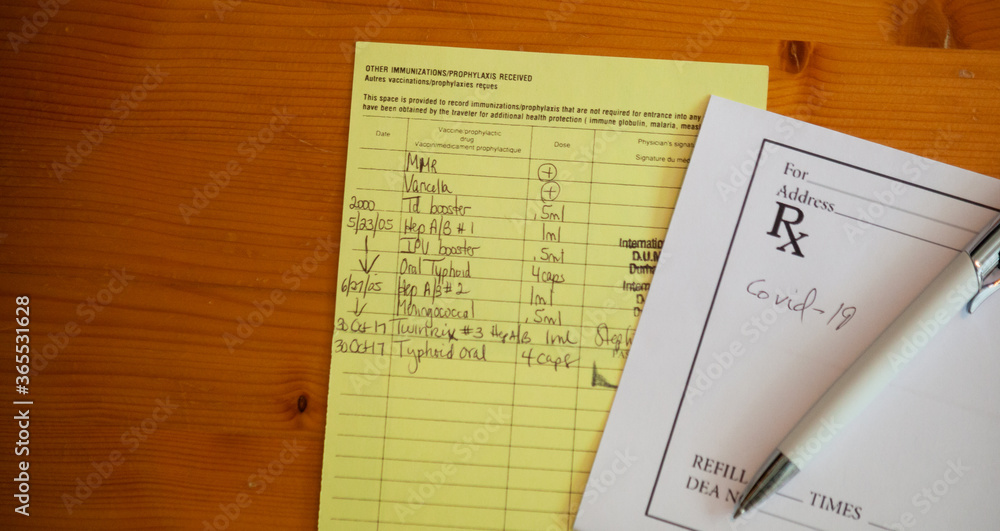 OTHER IMMUNIZATIONS/PROPHYLAXIS RECEIVED
Autres vaccinations/prophylaxies reçues
This space is provided to record immunizations/prophylaxis that are not required for entrance into any
have been obtained by the traveler for additional health protection ( immune globulin, malaria, meas
Date Vaccine/prophylactic drug Dose Physician's signa
Vaccin/médicament prophylactique Signature du mé
MMR +
Varicella +
2000 Td booster .5ml
5/23/05 Hep A/B # 1 1ml
IPV booster .5ml
Oral Typhoid 4caps
6/27/05 Hep A/B # 2 1ml
Meningococcal .5ml
30 Oct 17 Twinrix #3 Hep A/B 1ml Steph
30 Oct 17 Typhoid Oral 4 caps
Internatio
D.U.M
Durha
Intern
For
Address
Rx
Covid-19
REFILL TIMES
DEA NO
Adobe Stock | #365531628